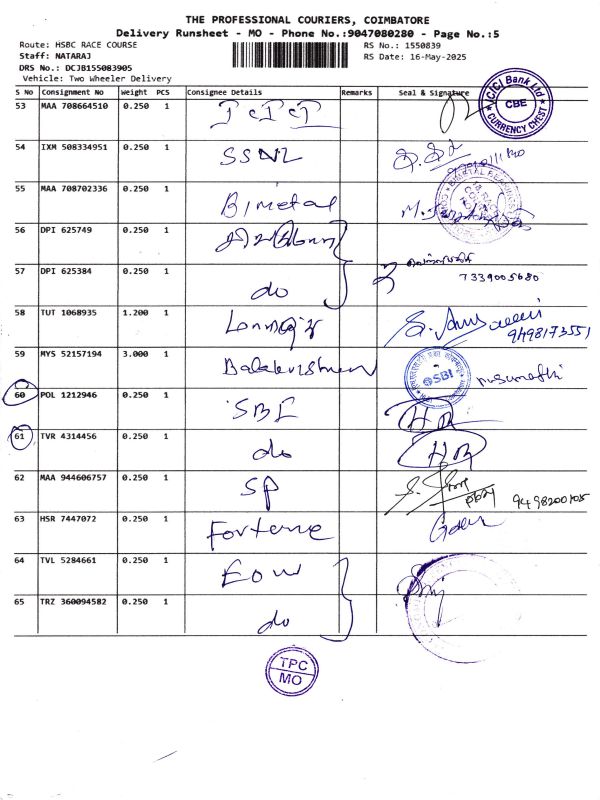 THE PROFESSIONAL COURIERS, COIMBATORE
Delivery Runsheet - MO - Phone No.:9047080280 - Page No.:5
Route: HSBC RACE COURSE
RS No.: 1550839
Staff: NATARAJ
RS Date: 16-May-2025
DRS No.: DCJB155083905
Vehicle: Two Wheeler Delivery
S No Consignment No Weight PCS Consignee Details Remarks Seal & Signature
53 MAA 708664510 0.250 1
ICICI Bank Ltd CBE CURRENCY CHEST
54 IXM 508334951 0.250 1 SSNL
55 MAA 708702336 0.250 1 Bimetal
56 DPI 625749 0.250 1
57 DPI 625384 0.250 1 do
7339005680
58 TUT 1068935 1.200 1
9498173551
59 MYS 52157194 3.000 1 Balakrishnan
SBI
60 POL 1212946 0.250 1 SBI
61 TVR 4314456 0.250 1 do
62 MAA 944606757 0.250 1 SP
63 HSR 7447072 0.250 1 Fortune
64 TVL 5284661 0.250 1 EOW
65 TRZ 360094582 0.250 1 do
TPC
MO